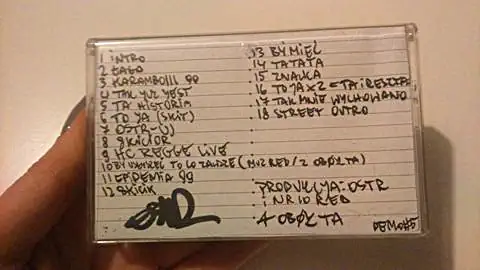 1 INTRO
2 ŁAGO
3 KARAMBOLLL 99
4 TAK JUŻ JEST
5 TA HISTORIA
6 TO JA (SKIT)
7 OSTR-UJ
8 SKICIOR
9 HC REGGE LIVE
10 BY UMKEL TO LO ZAWDZE (MIZRED/2 OBOKTA)
11 EPIDEMIA 99
12 SKICIK
13 BY MIEĆ
14 TATATA
15 ZNAJKA
16 TO JA X2 = TA I RESZTA
17 TAK MNIE WYCHOWANO
18 STREET OUTRO
PRODUKCJA: OSTR
I NR 10 RED
4 OBOKTA
DEMO#5